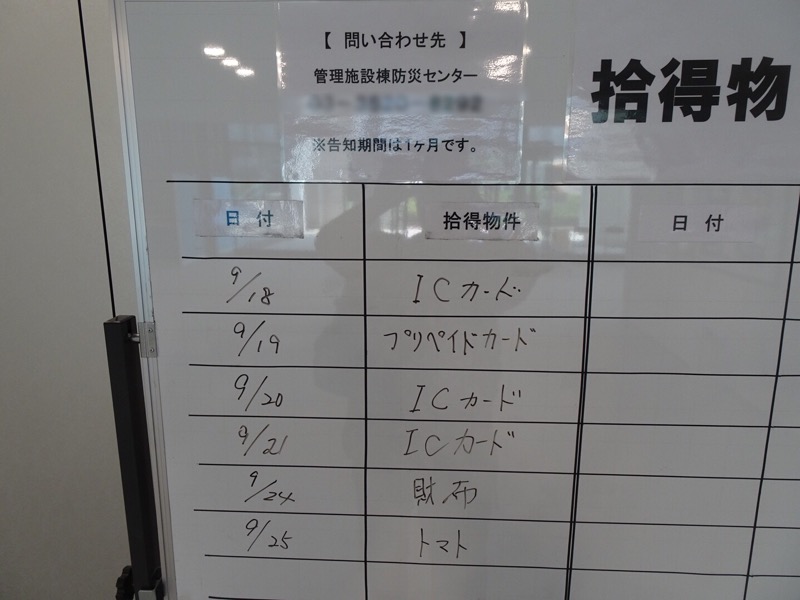 【 問い合わせ先 】
管理施設棟防災センター
※告知期間は1ヶ月です。
拾得物
日付 拾得物件 日付
9/18 ICカード
9/19 プリペイドカード
9/20 ICカード
9/21 ICカード
9/24 財布
9/25 トマト